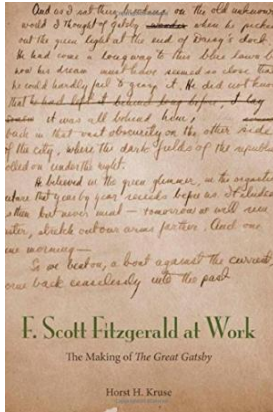 And as I sat there, brooding on the old unknown
world I thought of Gatsby when he picked
out the green light at the end of Daisy's dock.
He had come a long way to this blue lawn
and his dream must have seemed so close
he could hardly fail to grasp it. He did not know
that he had left it behind long before,
it was all behind him,
back in that vast obscurity on the other side
of the city, where the dark fields of the republic
rolled on under the night.
He believed in the green glimmer, in the orgastic
future that year by year recedes before us. It eluded
us then but never mind — tomorrow we will run
faster, stretch out our arms farther. And one
fine morning —
So we beat on, a boat against the current,
borne back ceaselessly into the past
F. Scott Fitzgerald at Work
The Making of The Great Gatsby
Horst H. Kruse